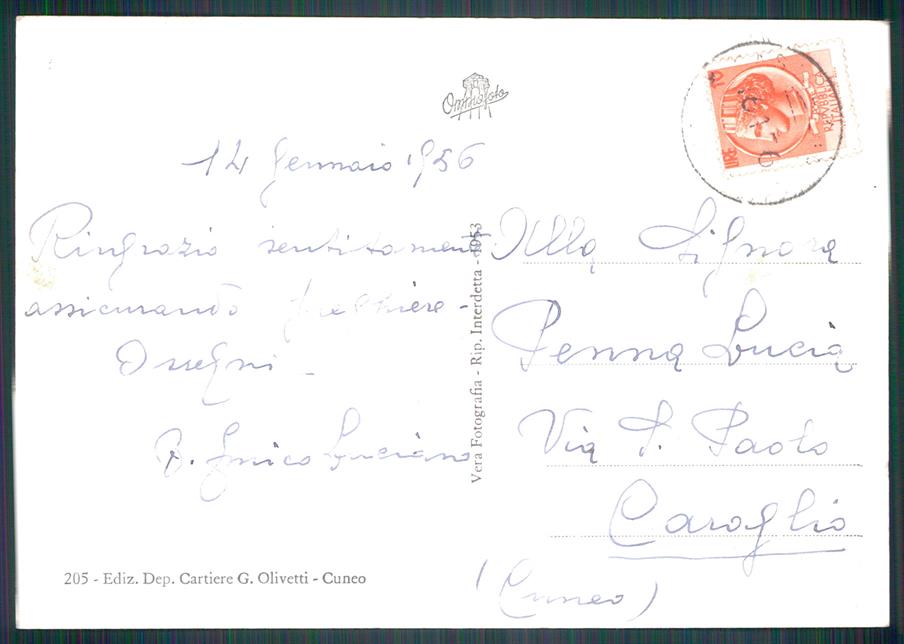 Omniafoto
14 Gennaio 1956
Ringrazio sentitamente
assicurando preghiere -
Ossequi -
Luciano
205 - Ediz. Dep. Cartiere G. Olivetti - Cuneo
Vera Fotografia - Rip. Interdetta - 1953
LIRE 10
REPUBBLICA ITALIANA
Alla Signora
Penna Lucia
Via S. Paolo
Caraglio
(Cuneo)